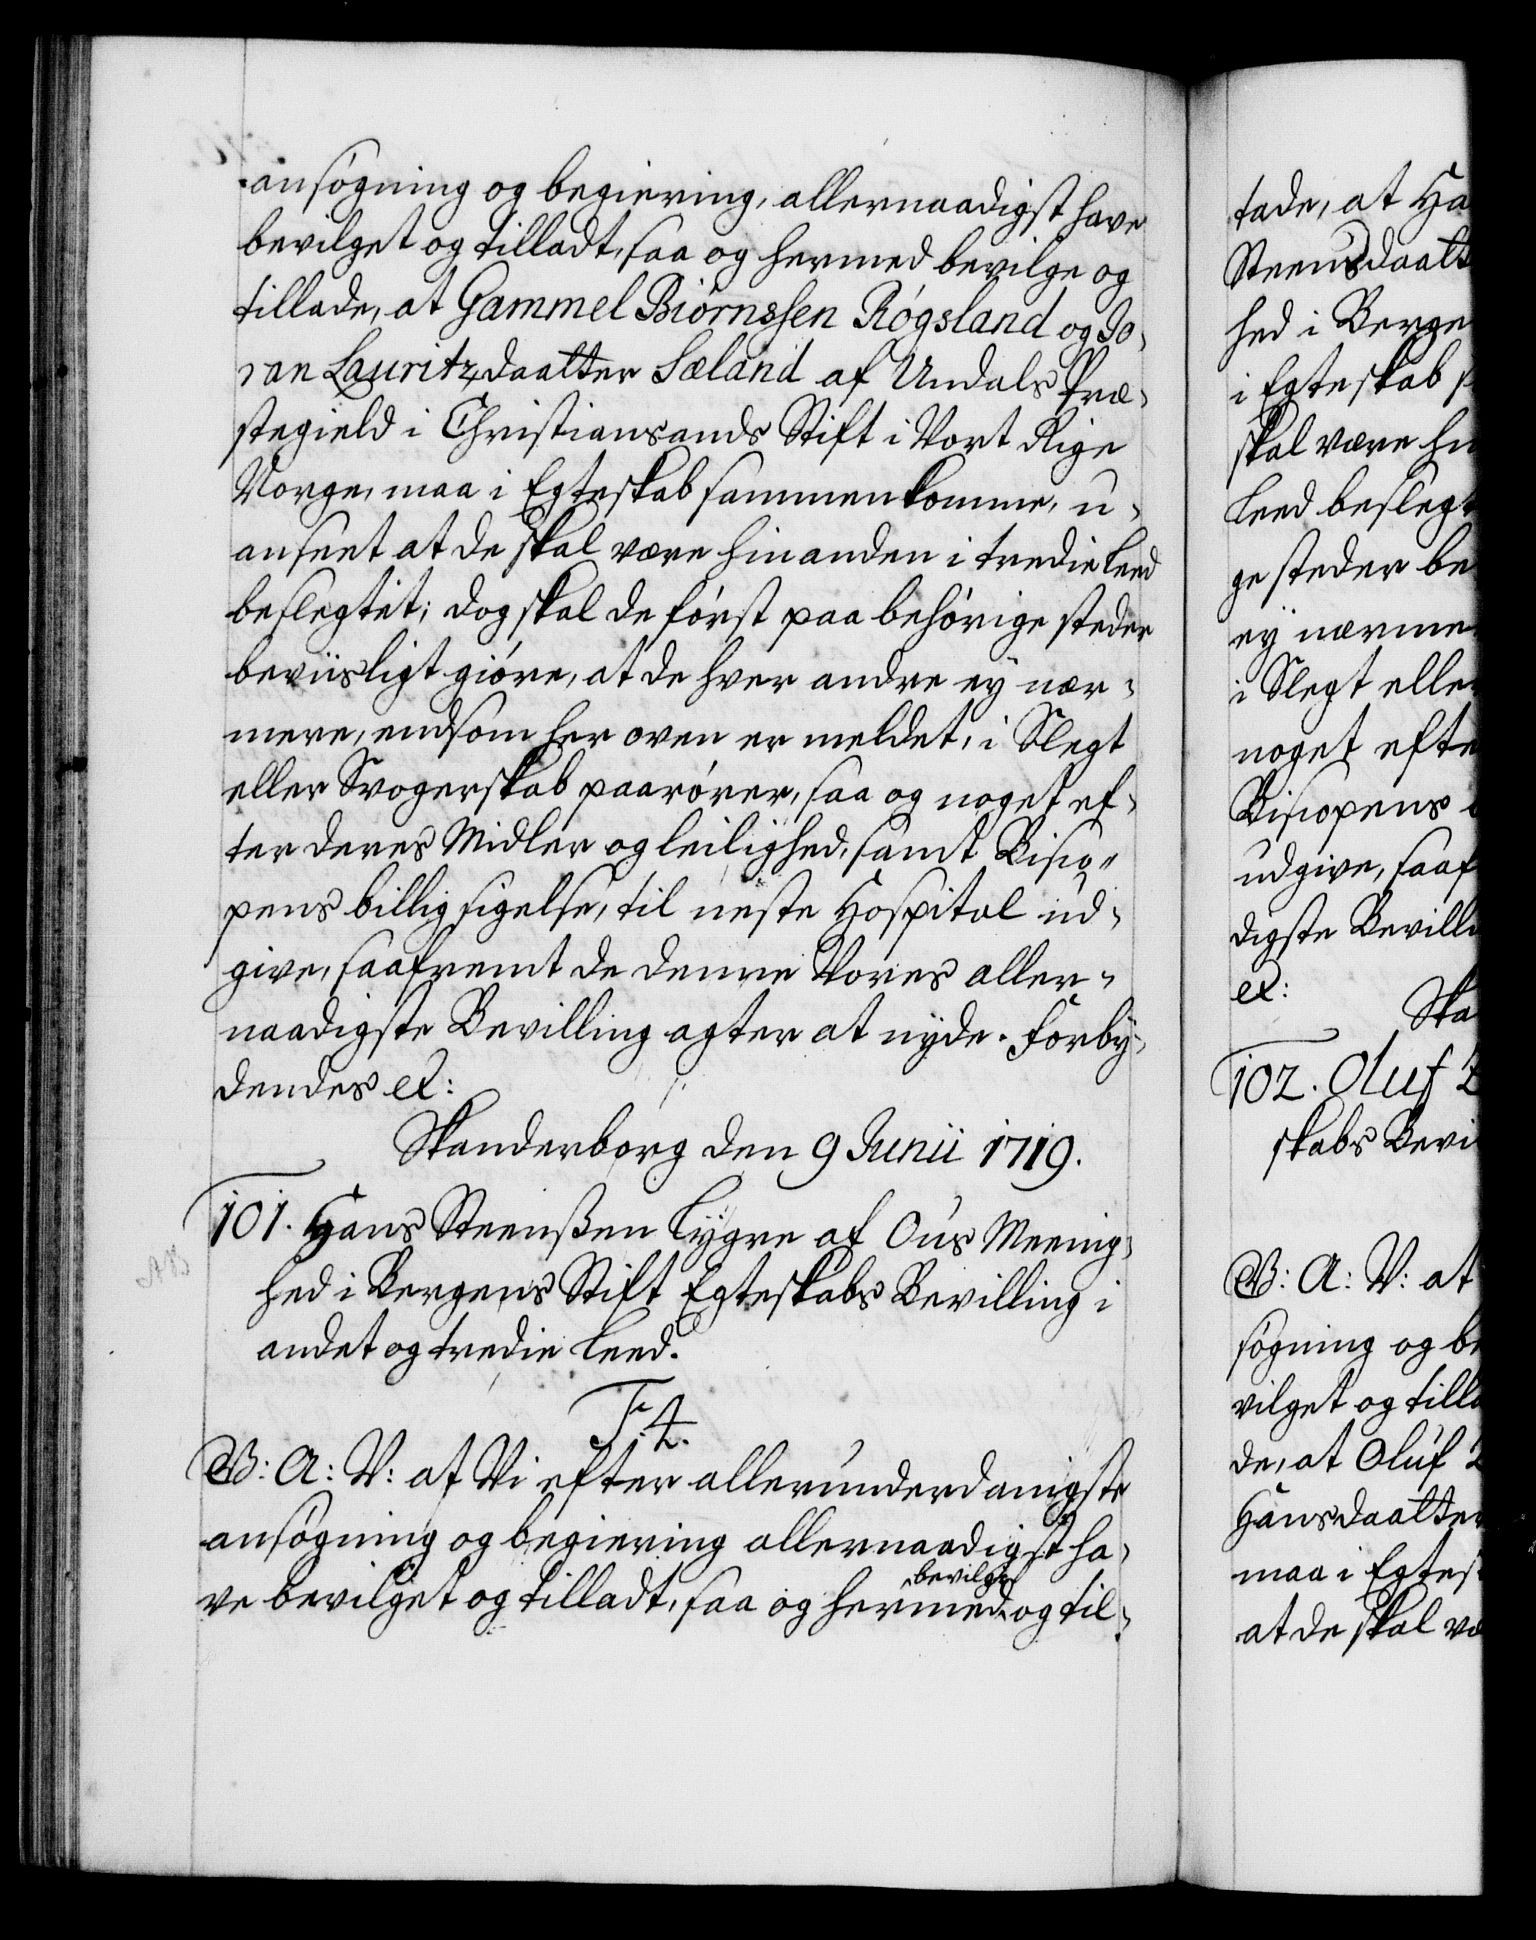 ansøgning og begiering, allernaadigst have
bevilget og tilladt, saa og hermed bevilge og
tillade, at Gammel Biørnssen Røgsland og Jo-
ran Lauritzdaatter Sæland af Undals Præ-
stegield i Christiansands Stift i Vort Rige
Norge, maa i Egteskab sammenkomme, u-
anseet at de skal være hinanden i tredie Leed
beslegtet; dog skal de først paa behørige steder
beviisligt giøre, at de hver andre ey nær-
mere, end som her oven er meldet, i Slegt
eller Svogerskab paarører, saa og noget ef-
ter deres Midler og leilighed, samt Bisio-
pens billig sigelse, til neste Hospital ud-
give, saafremt de denne Vores aller-
naadigste Bevilling agter at nyde. Forby-
dendes etc:
Skanderborg den 9 Junii 1719.
101. Hans Steenssen Lygre af Ous Meenig-
hed i Bergens Stift Egteskabs Bevilling i
andet og tredie Leed.
F. 4.
G: A: V: at Vi efter allerunderdanigste
ansøgning og begiering allernaadigst ha-
ve bevilget og tilladt, saa og hermed bevilge og til-
tade, at Ha
Steensdaatt
hed i Berge
i Egteskab s
skal være hi
Leed beslegt
ge steder be
ey nærme
i Slegt elle
noget efte
Bisiopens
udgive, saaf
digste Bevilli
etc:
Ska
102. Oluf
skabs Bevi
G: A: V: at
søgning og be
vilget og tilla
de, at Oluf
Hansdaatter
maa i Egtes
at de skal væ